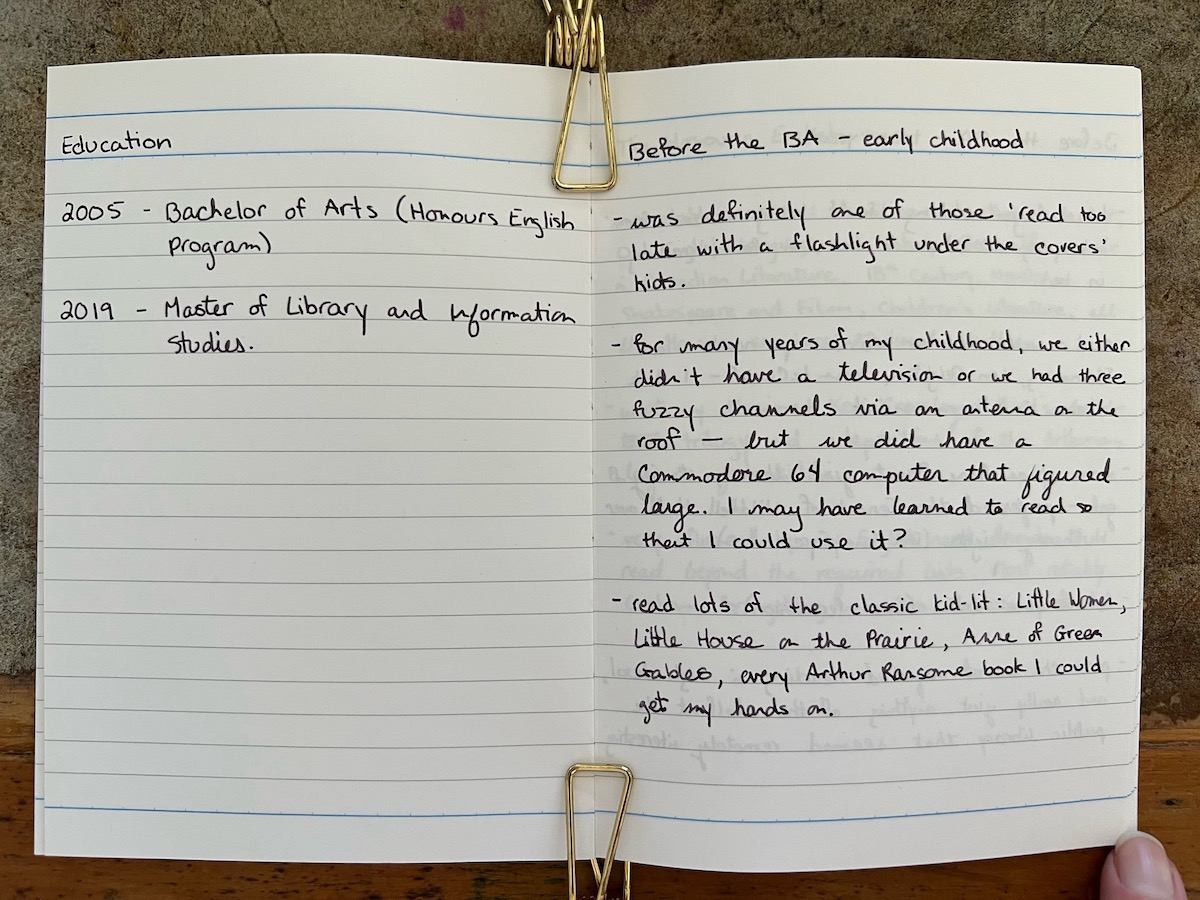 Education
2005 - Bachelor of Arts (Honours English
program)
2019 - Master of Library and Information
Studies.
Before the BA - early childhood
- was definitely one of those 'read too
late with a flashlight under the covers'
kids.
- for many years of my childhood, we either
didn't have a television or we had three
fuzzy channels via an antenna on the
roof — but we did have a
Commodore 64 computer that figured
large. I may have learned to read so
that I could use it?
- read lots of the classic kid-lit: Little Women,
Little House on the Prairie, Anne of Green
Gables, every Arthur Ransome book I could
get my hands on.